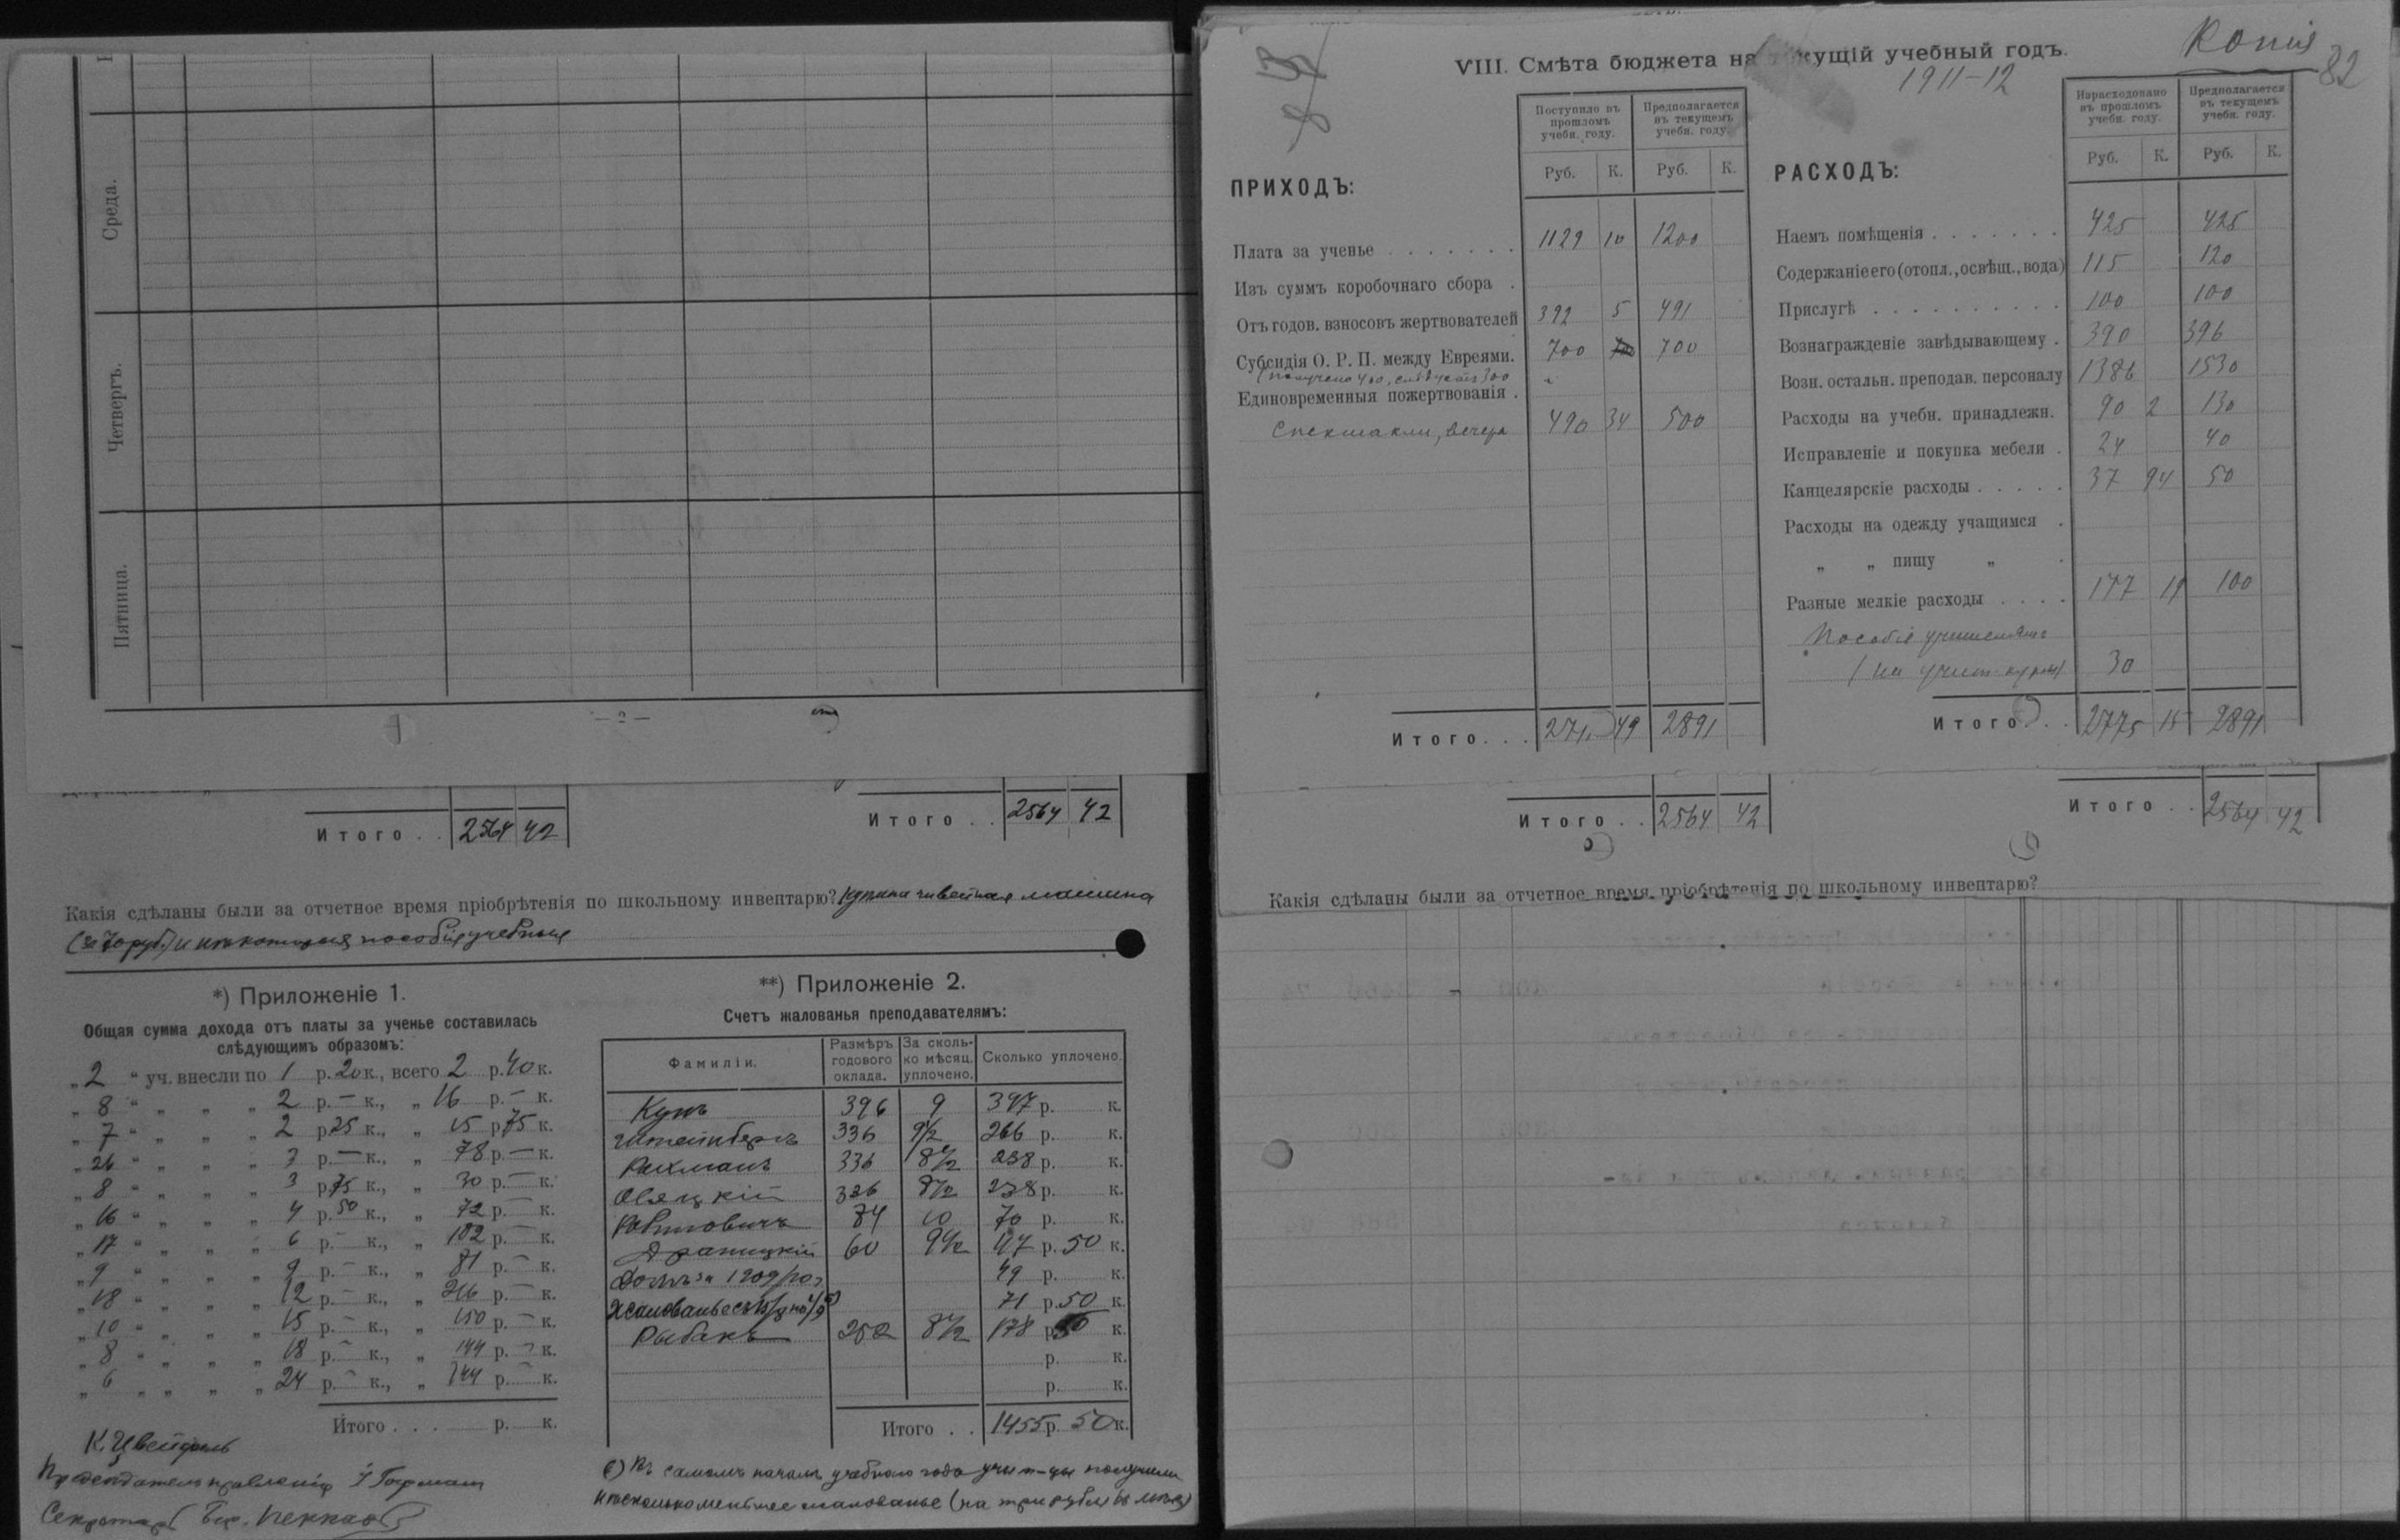 Среда.
Четвергъ.
Пятница.
— 2 —
Итого . . 2564 42
Итого . . 2564 42
Какія сдѣланы были за отчетное время пріобрѣтенія по школьному инвентарю? Куплена швейная машина
(за 70 руб.) и нѣкоторыя пособія учебныя
*) Приложеніе 1.
Общая сумма дохода отъ платы за ученье составилась
слѣдующимъ образомъ:
„ 2 “ уч. внесли по 1 р. 20 к., всего 2 р. 40 к.
„ 8 “ „ „ „ 2 р. — к., „ 16 р. — к.
„ 7 “ „ „ „ 2 р. 25 к., „ 15 р. 75 к.
„ 26 “ „ „ „ 3 р. — к., „ 78 р. — к.
„ 8 “ „ „ „ 3 р. 75 к., „ 30 р. — к.
„ 16 “ „ „ „ 4 р. 50 к., „ 72 р. — к.
„ 17 “ „ „ „ 6 р. — к., „ 102 р. — к.
„ 9 “ „ „ „ 9 р. — к., „ 81 р. — к.
„ 18 “ „ „ „ 12 р. — к., „ 216 р. — к.
„ 10 “ „ „ „ 15 р. — к., „ 150 р. — к.
„ 8 “ „ „ „ 18 р. — к., „ 144 р. — к.
„ 6 „ „ „ „ 24 р. — к., „ 144 р. — к.
Итого . . . р. к.
Предсѣдатель правленія Гофманъ
Секретарь
**) Приложеніе 2.
Счетъ жалованья преподавателямъ:
Фамиліи. Размѣръ годового оклада. За сколько мѣсяц. уплочено. Сколько уплочено.
Кунъ 396 9 р. к.
Штейнбергъ 336 9½ 266 р. к.
Рахманъ 336 8½ 238 р. к.
336 8½ 238 р. к.
Рабиновичъ 84 10 70 р. к.
60 9½ 47 р. 50 к.
за 1909/10 г. 49 р. к.
Жалованье съ 71 р. 50 к.
Рыбакъ 252 8½ 178 р. 50 к.
р. к.
р. к.
Итого . . 1455 р. 50 к.
Въ самомъ началѣ учебнаго года учит-цы получили
нѣсколько меньшее жалованье (на три рубля въ мѣсяц)
Копія
82
VIII. Смѣта бюджета на текущій учебный годъ.
1911-12
ПРИХОДЪ:
Поступило въ прошломъ учебн. году. Предполагается въ текущемъ учебн. году.
Руб. К. Руб. К.
Плата за ученье . . . . . . . 1129 10 1200
Изъ суммъ коробочнаго сбора .
Отъ годов. взносовъ жертвователей 392 5 491
Субсидія О. Р. П. между Евреями. 700 700
(получено 400, слѣдуетъ 300
Единовременныя пожертвованія .
Спектакли, вечера 490 34 500
Итого . . . 271 49 2891
РАСХОДЪ:
Израсходовано въ прошломъ учебн. году. Предполагается въ текущемъ учебн. году.
Руб. К. Руб. К.
Наемъ помѣщенія . . . . . . . 425 425
Содержаніе его (отопл., освѣщ., вода) 115 120
Прислугѣ . . . . . . . . . . 100 100
Вознагражденіе завѣдывающему . 390 396
Возн. остальн. преподав. персоналу 1386 1530
Расходы на учебн. принадлежн. 90 2 130
Исправленіе и покупка мебели . 24 40
Канцелярскіе расходы . . . . . 37 94 50
Расходы на одежду учащимся .
„ „ пищу „ .
Разные мелкіе расходы . . . . 177 19 100
Пособіе учителямъ
(на учит. курсы) 30
Итого . . 2775 15 2891
Итого . . 2564 42
Итого . . 2564 42
Какія сдѣланы были за отчетное время пріобрѣтенія по школьному инвентарю?